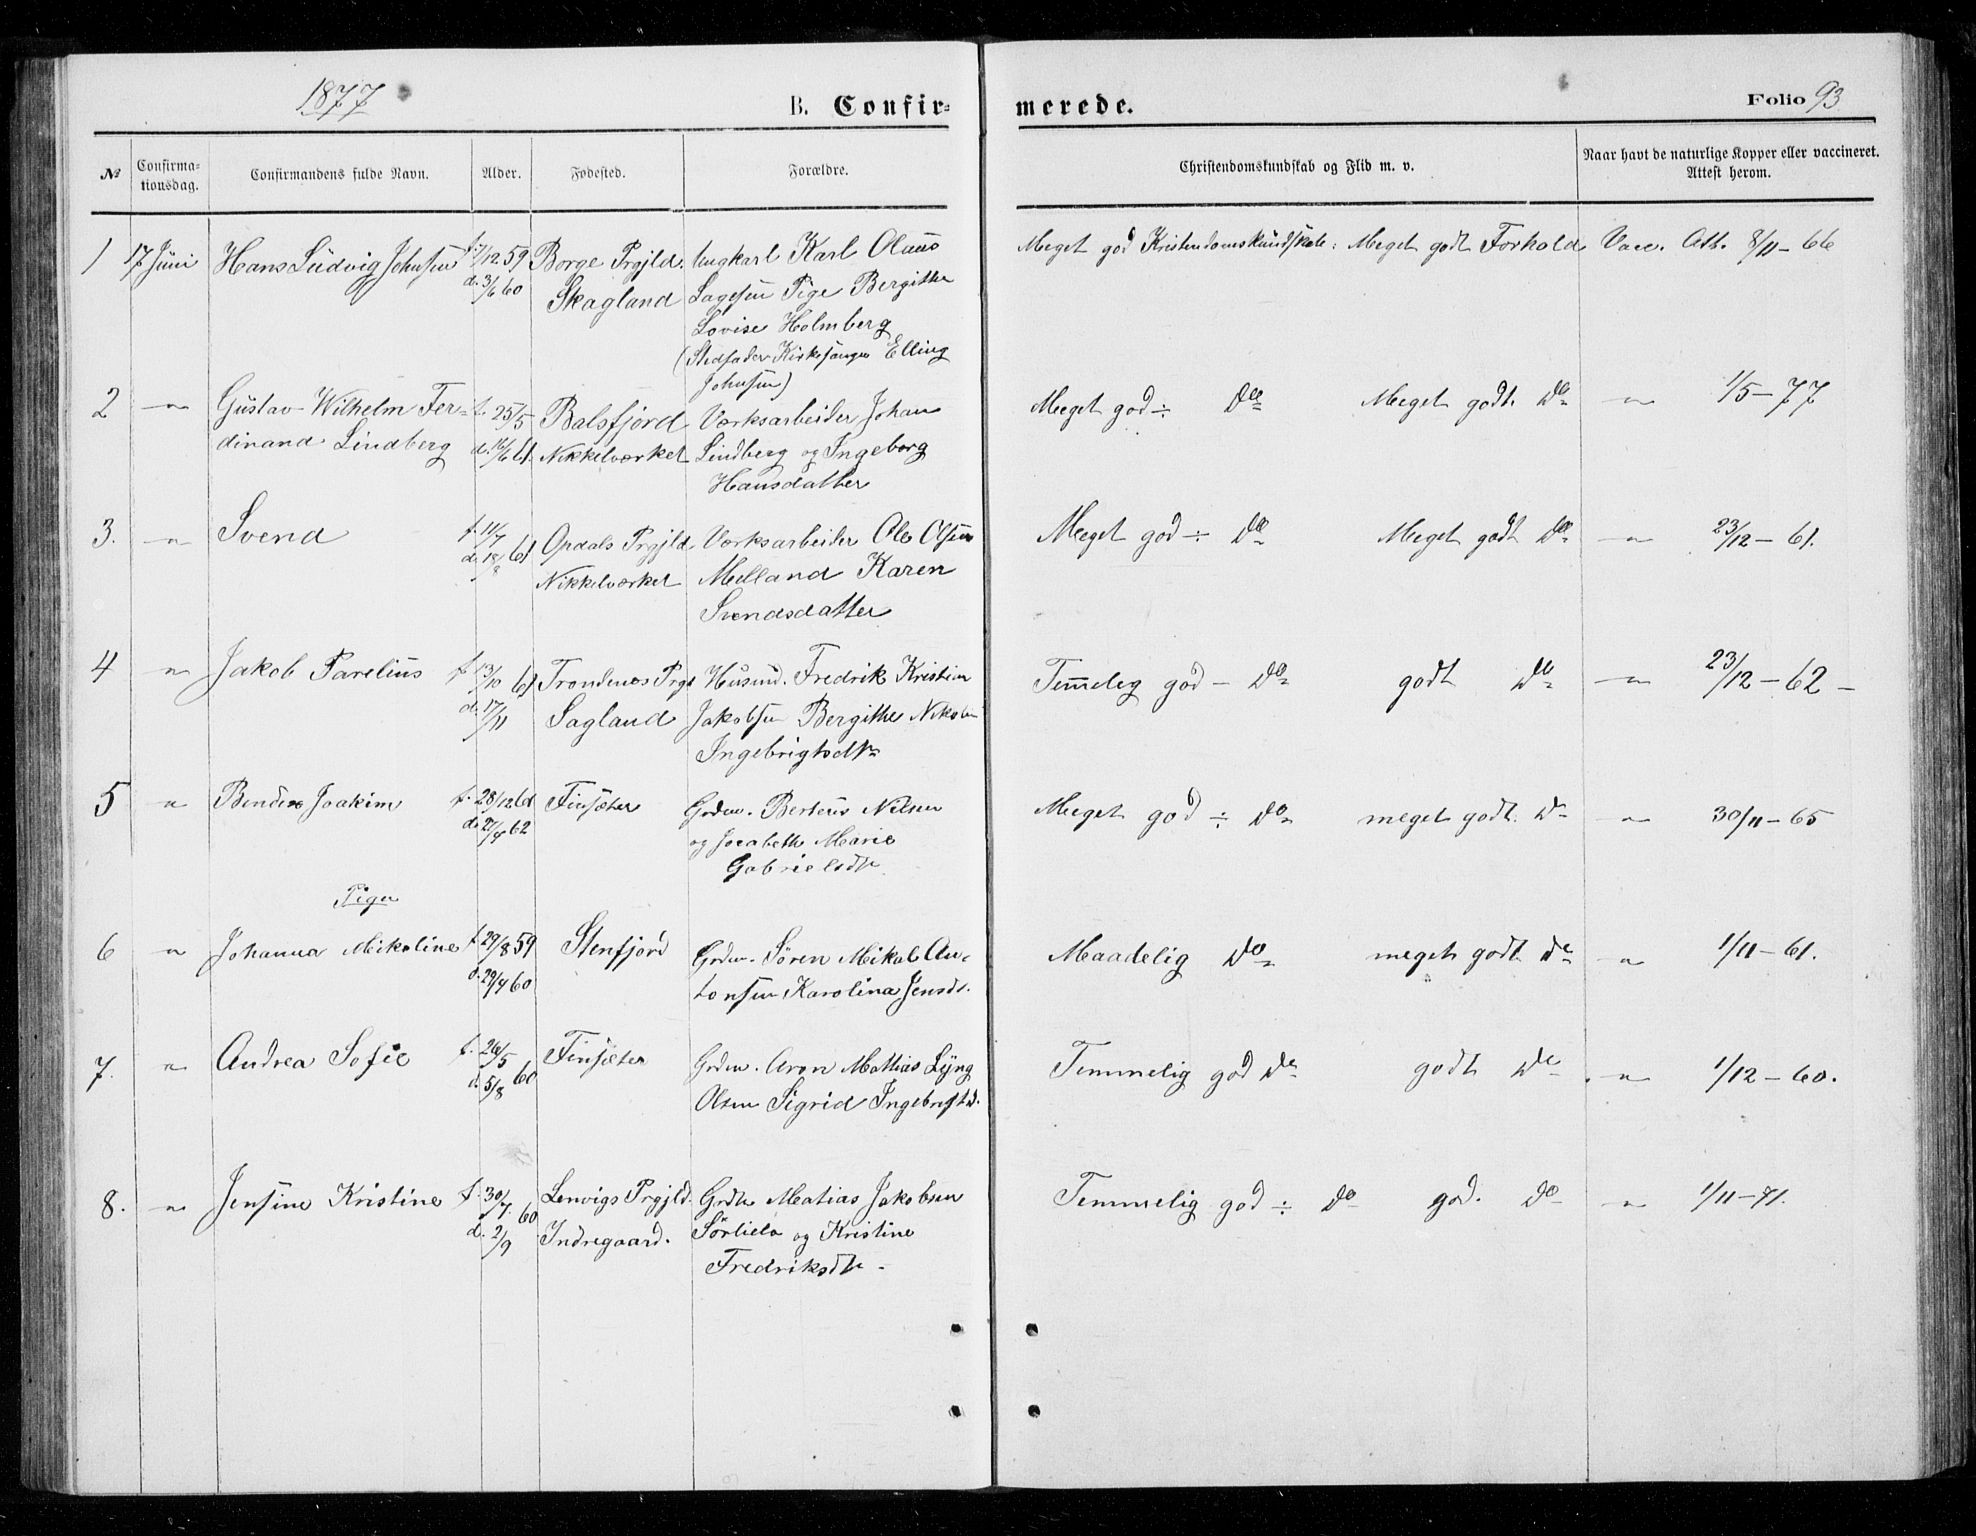 1877
B. Confirmerede.
Folio 93
№ Confirmationsdag. Confirmandens fulde Navn. Alder. Fødested. Forældre. Christendomskundskab og Flid m. v. Naar havt de naturlige Kopper eller vaccineret. Attest herom.
1 17 Juni Hans Ludvig Johnsen f. 7/12 59 Borge Prgjld. Ungkarl Karl Olaus Meget god Kristendomskundskab: Meget godt Forhold Vacc. Att. 8/11 - 66
d. 3/6 60 Skagland Lagesen Pige Bergitha
Lovise Holmberg
(Stedfader Kirkesanger Elling
Johnsen)
2 -"- Gustav Wilhelm Fer- f. 25/5 Balsfjord Værksarbeider Johan Meget god ÷ Do Meget godt Do -"- 1/5 - 77
dinand Lindberg d. 16/6 61. Nikkelværket Lindberg og Ingeborg
Hansdatter
3. -"- Svend f. 11/7 Opdals Prgjld Værksarbeider Ole Olsen Meget god ÷ Do Meget godt Do -"- 23/12 - 61.
d. 18/8 61 Nikkelværket Melland Karen
Svendsdatter
4 " Jakob Parelius f. 13/10 61 Trondenes Prgj Husmd. Fredrik Kristian Temmelig god - Do godt Do -"- 23/12 - 62 -
d. 17/11 Sagland Jakobsen Bergithe Nikolin
Ingebrigtsdtr
5 " Joakim f. 28/12 61 Finsæter Grdm. Berteus Nilsen Meget god ÷ Do meget godt. Do -"- 30/11 - 65
d. 27/4 62 og Marie
Gabrielsdtr.
Piger
6 " Johanna Mikoline f. 29/8 59 Stenfjord Grdm. Sören Mikal An- Maadelig Do meget godt Do " 1/11 - 61.
d. 29/4 60 tonsen Karolina Jensd.
7. " Andrea Sofie f. 26/5 Finsæter Grdm. Aron Mathias Lyng Temmelig god Do godt Do " 1/12 - 60.
d. 5/8 60 Olsen Sigrid Ingebrigtsd.
8. -"- Jensine Kristine f. 30/7. 60 Lenvigs Prgjld. Grdm Matias Jakobsen Temmelig god ÷ Do god. Do -"- 1/11 -
d. 2/9 Indregaard. Sørlielv og Kristine
Fredriksdtr -